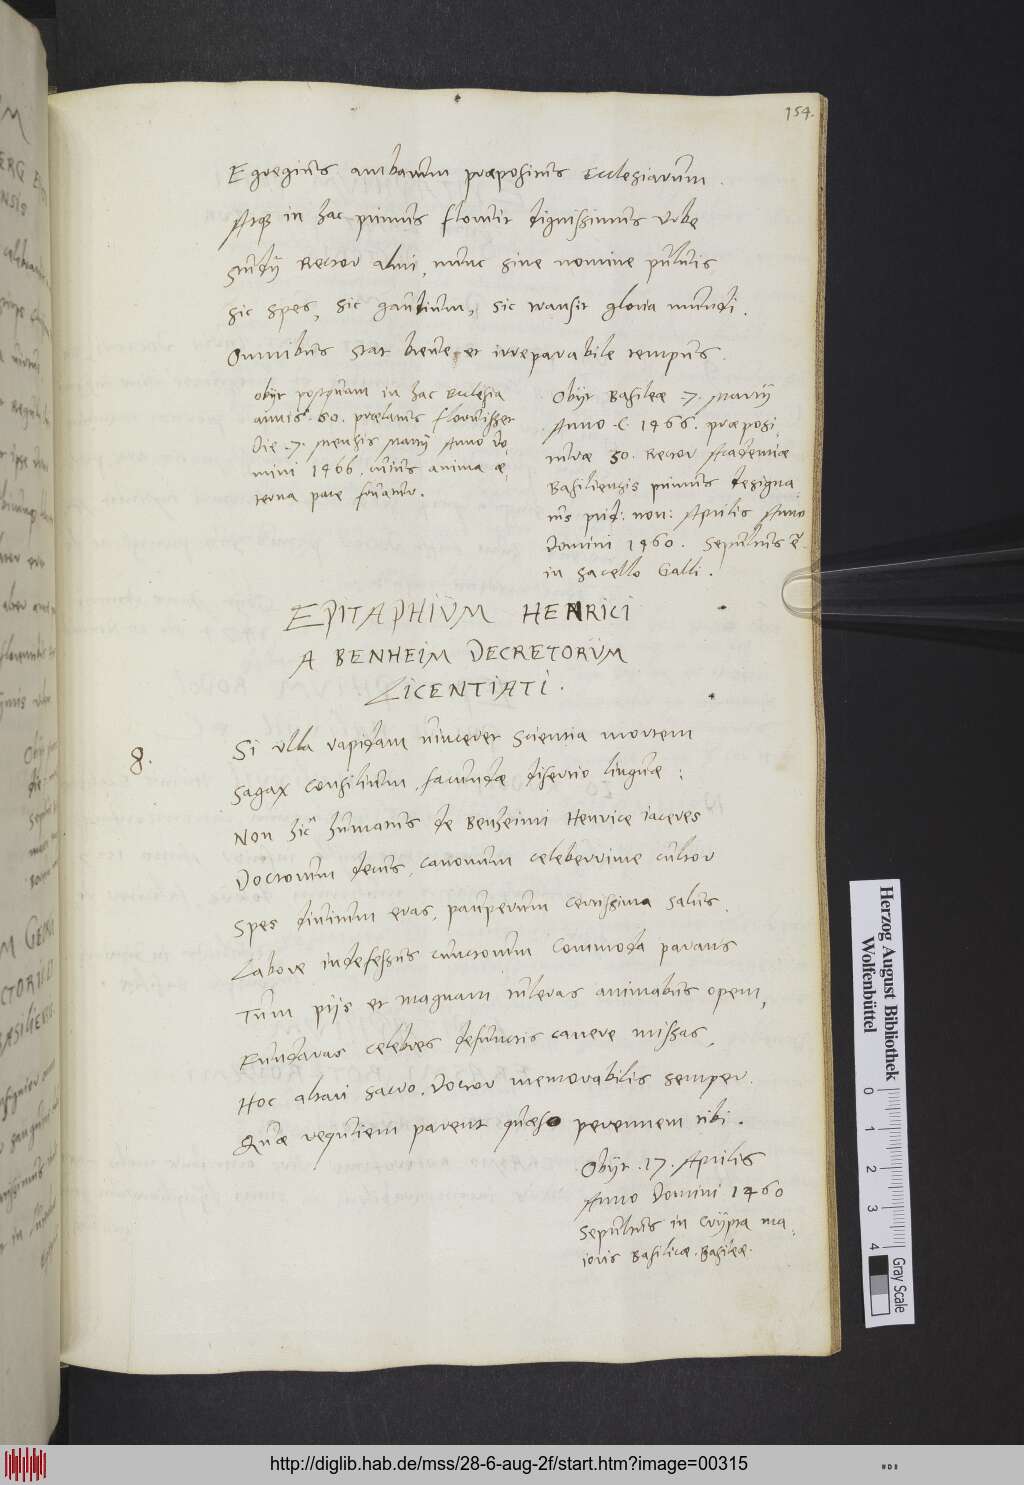 154.
Egregius ambarum præpositus Ecclesiarum.
Atq in hac primus floruit dignissimus Vrbe
Studij Rector almi, nunc sine nomine puluis
Sic spes, sic gaudium, sic transit gloria mundi.
Omnibus stat breue et irreparabile tempus.
Obijt postquam in hac Ecclesia
annis. 50. prælatus floruisset
Die .7. Mensis Martij Anno Do,
mini 1466. cuius anima æ,
terna pace fruatur.
Obijt Basileæ .7. Martij
Anno .C. 1466. præposi,
turæ 30. Rector Academiæ
Basiliensis primus designa,
tus prid: non: Aprilis Anno
Domini 1460. Sepultus ē.
in Sacello Galli.
EPITAPHIUM HENRICI
A BENHEIM DECRETORUM
LICENTIATI.
8.
Si vlla rapidam uinceret Scientia mortem
Sagax Consilium, facundæ disertio linguæ:
Non hic humatus de Benheimi Henrice iaceres
Doctorum decus, canonum celeberrime cultor
Spes diuitum eras, pauperum certissima salus.
Labore indefessus cunctorum Commoda parans
Tum pijs et magnam tuleras animabus opem,
Fundaras celebres defunctis canere missas,
Hoc altari sacro, Doctor memorabilis semper.
Quæ requiem parent quæso perennem tibi.
Obijt .17. Aprilis
Anno Domini 1460
Sepultus in Crypta ma,
ioris Basilicæ. Basileæ.
Herzog August Bibliothek
Wolfenbüttel
0 1 2 3 4
Gray Scale
http://diglib.hab.de/mss/28-6-aug-2f/start.htm?image=00315